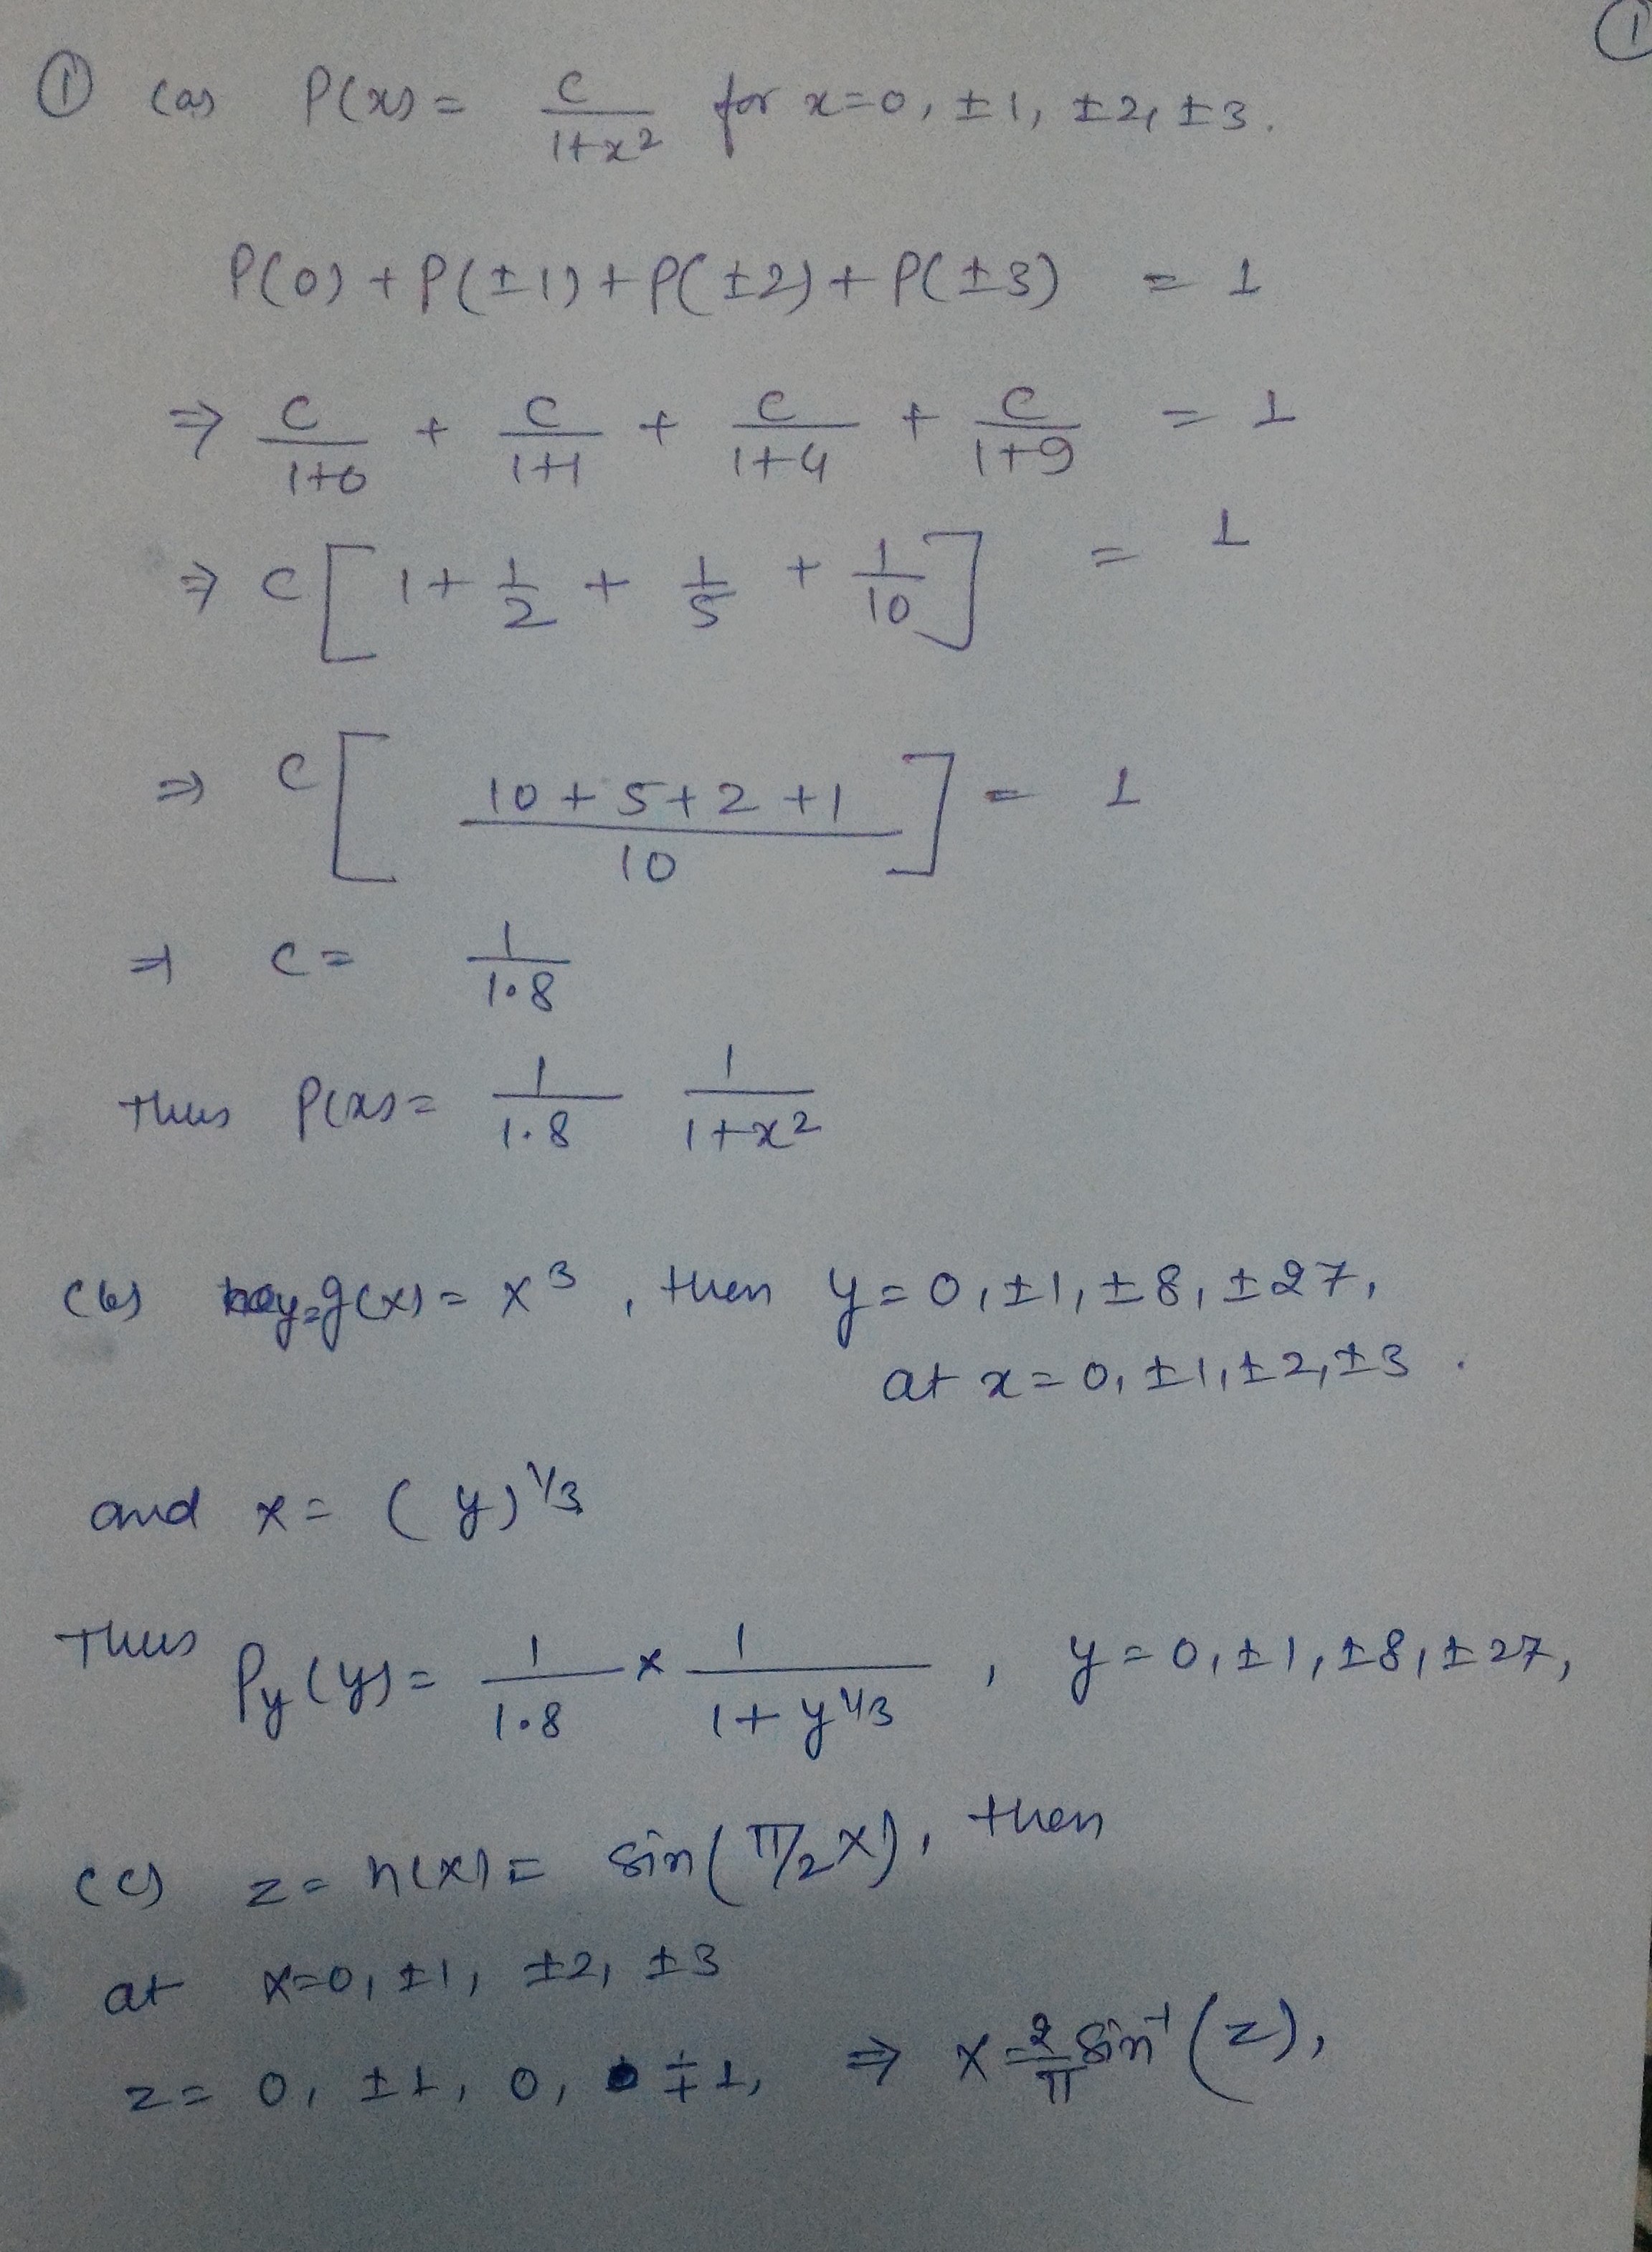 ①
① (a) P(x) = c/(1+x²) for x=0, ±1, ±2, ±3.
P(0) + P(±1) + P(±2) + P(±3) = 1
⇒ c/(1+0) + c/(1+1) + c/(1+4) + c/(1+9) = 1
⇒ c[1 + 1/2 + 1/5 + 1/10] = 1
⇒ c[(10+5+2+1)/10] = 1
⇒ c = 1/1.8
Thus P(x) = 1/1.8 1/(1+x²)
(b) y=g(x) = x³, then y = 0, ±1, ±8, ±27,
at x = 0, ±1, ±2, ±3.
and x = (y)^1/3
Thus Py(y) = 1/1.8 × 1/(1+y^1/3), y = 0, ±1, ±8, ±27,
(c) z = h(x) = sin(π/2 x), then
at x=0, ±1, ±2, ±3
z = 0, ±1, 0, ∓1, ⇒ x = 2/π sin⁻¹(z),